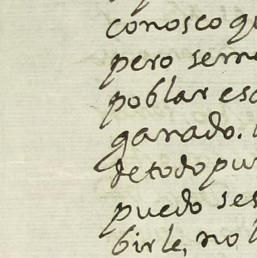 conosco qu
pero seme
poblar esa
ganado.
de todo pu
puedo ser
birle, no l